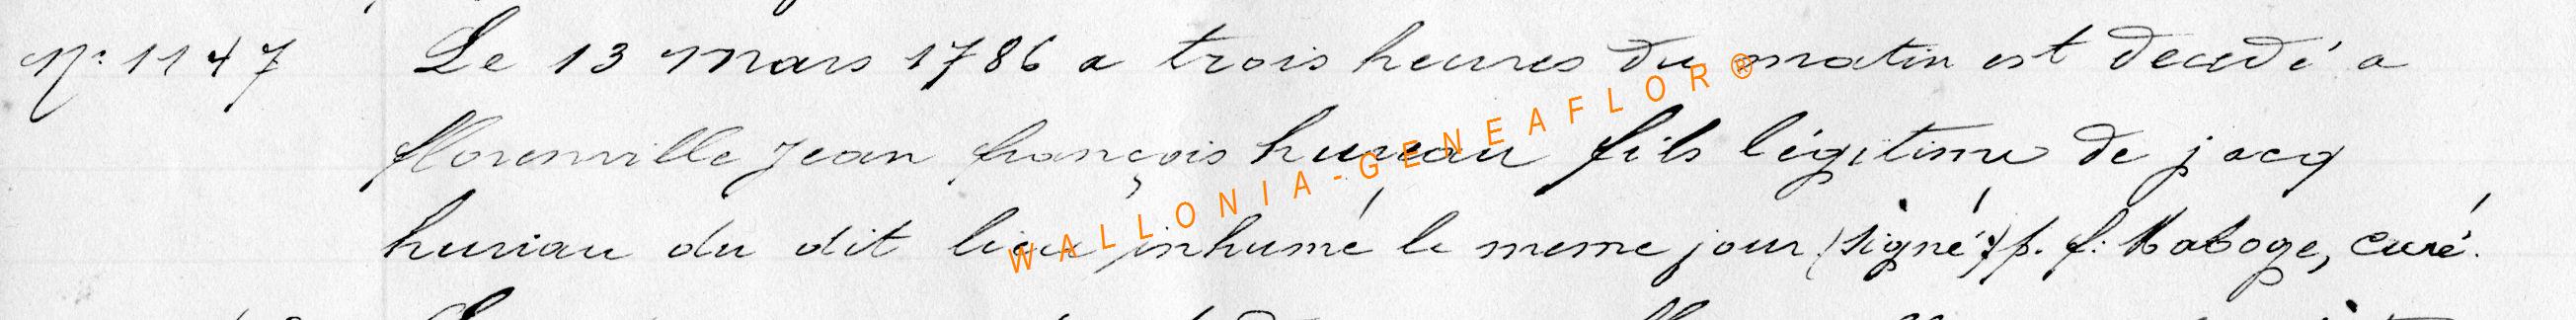 N° 1147 Le 13 mars 1786 a trois heures du matin est decedé a
florenville jean françois hureau fils légitime de jacq
huriau du dit lieu inhumé le meme jour (signé) p. f. Maboge, curé.
WALLONIA-GENEAFLOR®